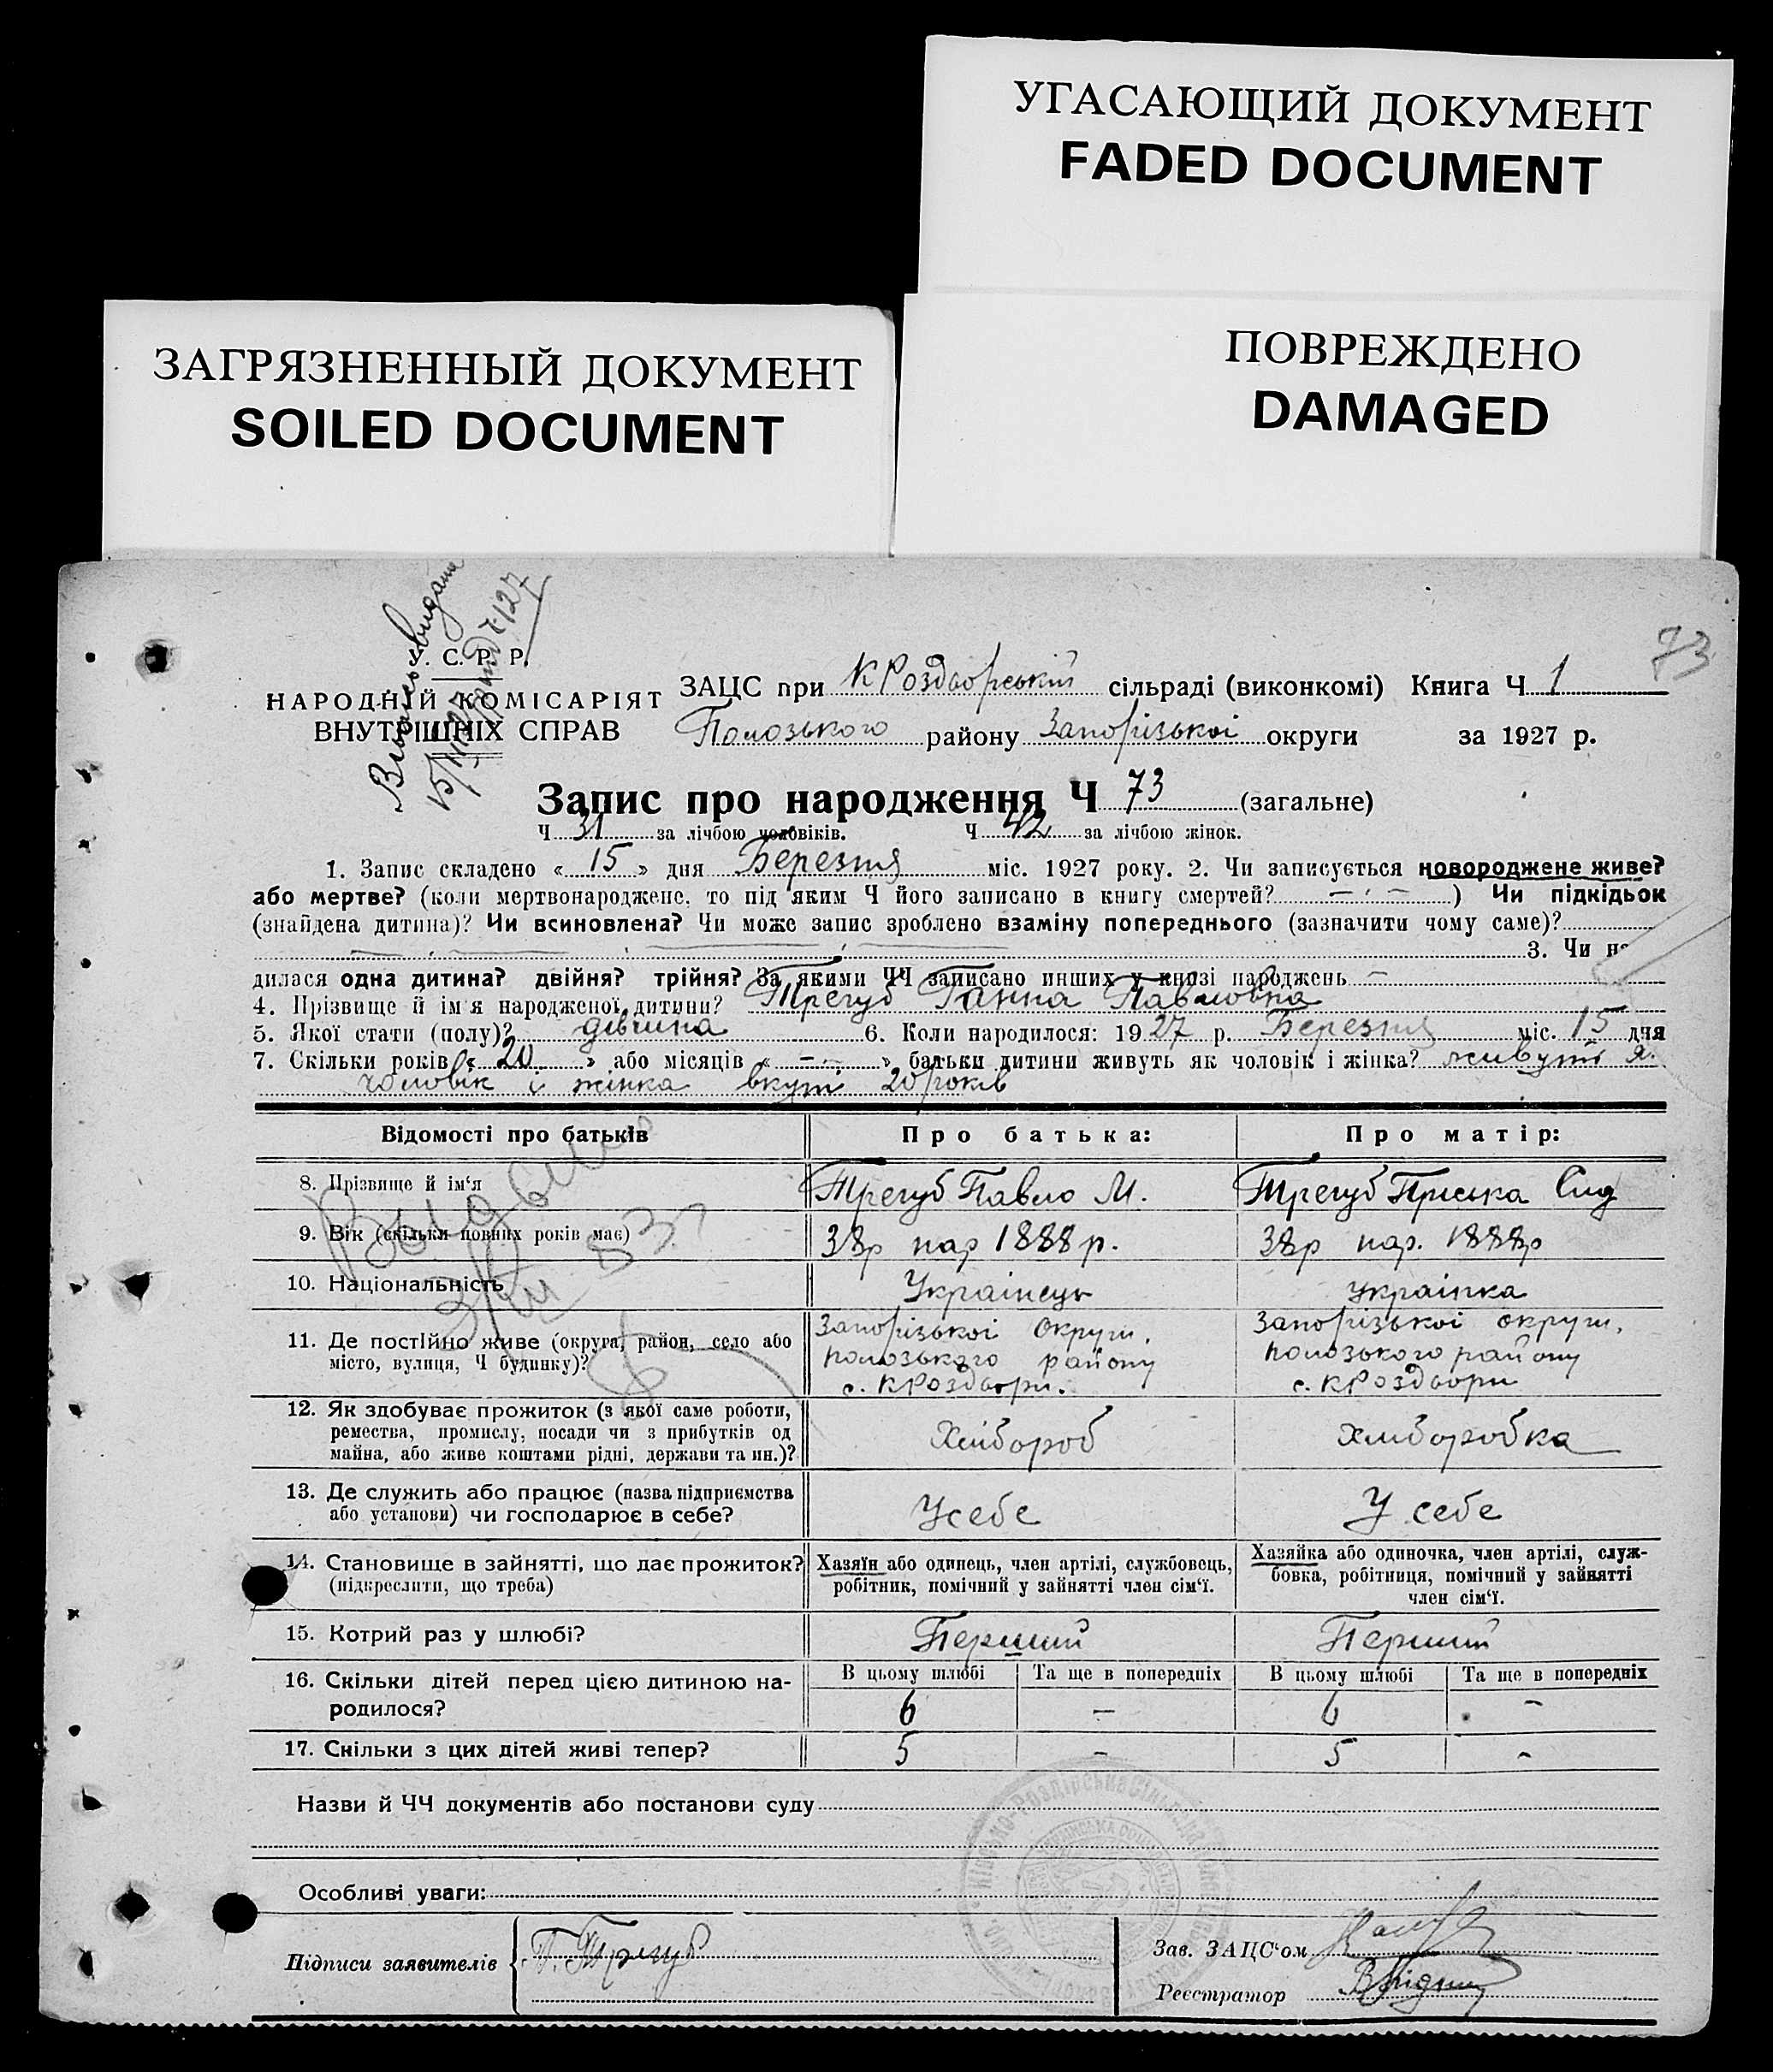 УГАСАЮЩИЙ ДОКУМЕНТ
FADED DOCUMENT
ЗАГРЯЗНЕННЫЙ ДОКУМЕНТ
SOILED DOCUMENT
ПОВРЕЖДЕНО
DAMAGED
73
У. С. Р. Р.
НАРОДНІЙ КОМІСАРІЯТ
ВНУТРІШНІХ СПРАВ
ЗАЦС при К Роздорській сільраді (виконкомі) Книга Ч 1
Полозького району Запорізькоі округи за 1927 р.
Запис про народження Ч 73 (загальне)
Ч 31 за лічбою чоловіків. Ч 42 за лічбою жінок.
1. Запис складено « 15 » дня Березня міс. 1927 року. 2. Чи записується новороджене живе?
або мертве? (коли мертвонароджене, то під яким Ч його записано в книгу смертей? — · — ) Чи підкідьок
(знайдена дитина)? Чи всиновлена? Чи може запис зроблено взаміну попереднього (зазначити чому саме)?
3. Чи на
дилася одна дитина? двійня? трійня? За якими ЧЧ записано инших у книзі народжень —
4. Прізвище й ім'я народженої дитини? Трегуб Ганна Павловна
5. Якої стати (полу)? дівчина 6. Коли народилося: 1927 р. Березня міс. 15 дня
7. Скільки років « 20 » або місяців « — » батьки дитини живуть як чоловік і жінка? живуть я.
чоловік і жінка вкупі 20 років
Відомості про батьків Про батька: Про матір:
8. Прізвище й ім‘я Трегуб Павло М. Трегуб Пріська Сид
9. Вік (скільки повних років має) 38р нар 1888 р. 38р нар. 1888р
10. Національність Украінець украінка
11. Де постійно живе (округа, район, село або місто, вулиця, Ч будинку)? Запорізькоі округи, Запорізькоі округи,
полозького району полозького району
с. КРоздори. с. КРоздори
12. Як здобуває прожиток (з якої саме роботи,
ремества, промислу, посади чи з прибутків од
майна, або живе коштами рідні, держави та ин.)? Хлібороб хліборобка
13. Де служить або працює (назва підприємства
або установи) чи господарює в себе? У себе У себе
14. Становище в зайнятті, що дає прожиток?
(підкреслити, що треба)
Хазяїн або одинець, член артілі, службовець,
робітник, помічний у зайнятті член сім‘ї.
Хазяйка або одиночка, член артілі, служ-
бовка, робітниця, помічний у зайнятті
член сім‘ї.
15. Котрий раз у шлюбі? Перший Перший
16. Скільки дітей перед цією дитиною на-
родилося?
В цьому шлюбі Та ще в попередніх В цьому шлюбі Та ще в попередніх
6 — 6 —
17. Скільки з цих дітей живі тепер? 5 — 5 —
Назви й ЧЧ документів або постанови суду
Особливі уваги:
Підписи заявителів П. Трегуб
Зав. ЗАЦС‘ом
Реєстратор